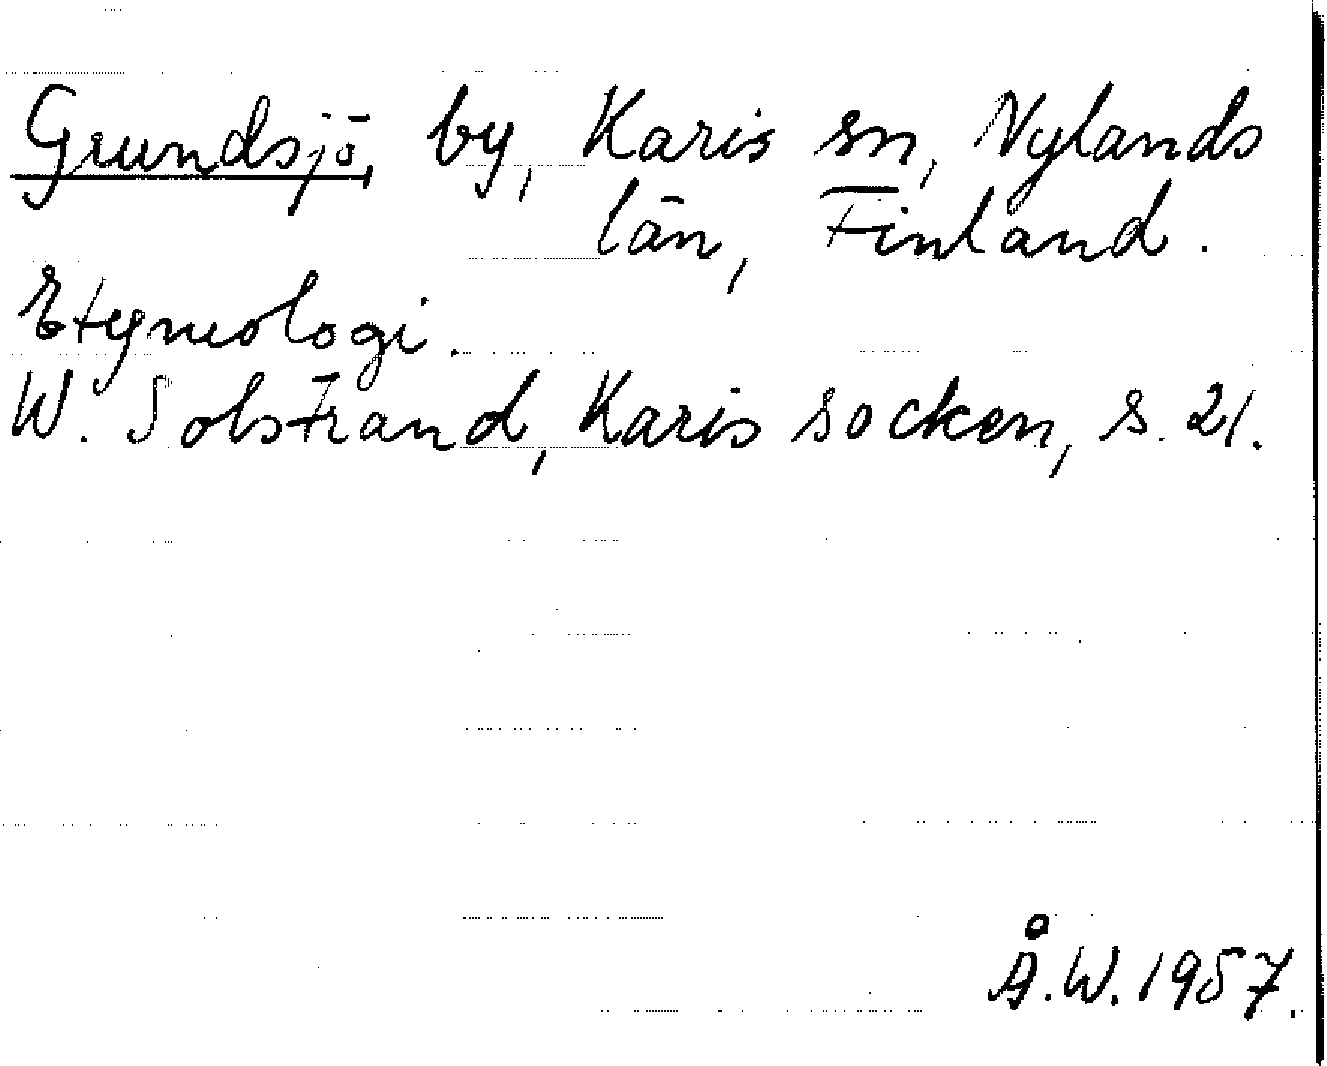 Grundsjö, by, Karis sn, Nylands
län, Finland.
Etymologi.
W. Solstrand, Karis socken, s. 21.
Å.W. 1957.